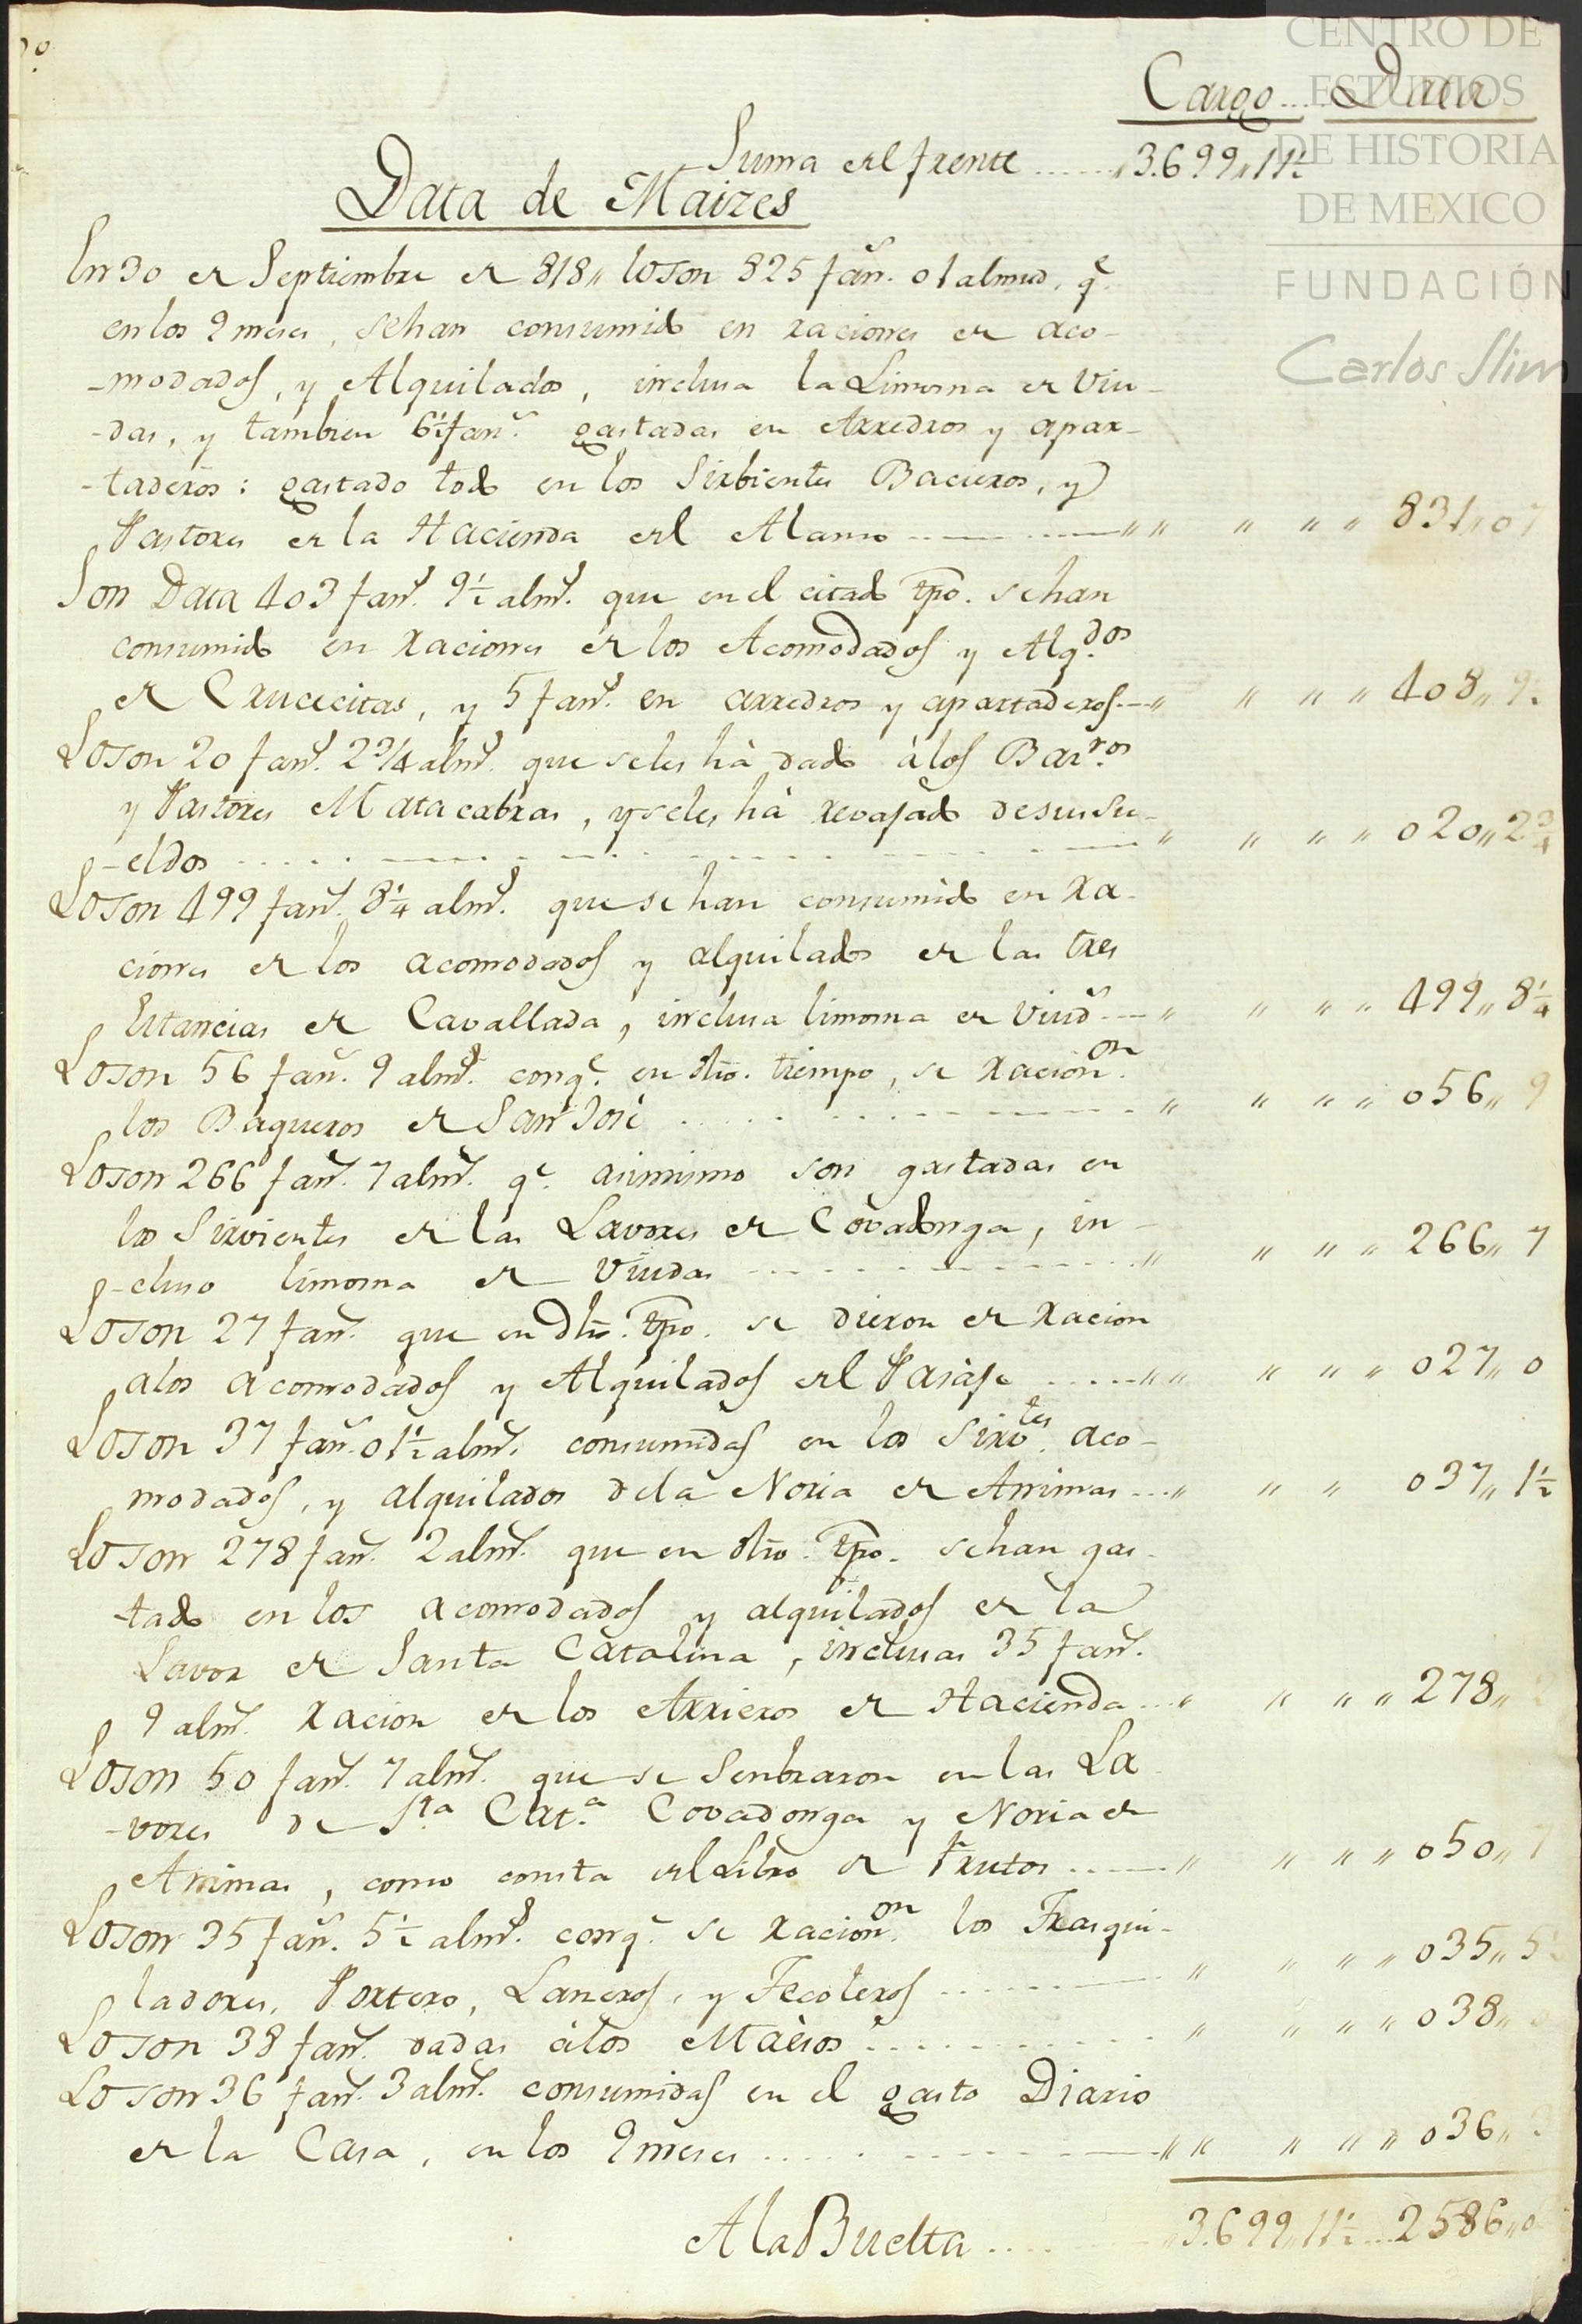 CENTRO DE
ESTUDIOS
DE HISTORIA
DE MEXICO
FUNDACIÓN
Carlos Slim
Cargo .... Data
Suma del frente ...... 3.699,, 11½
Data de Maizes
En 30 de Septiembre de 818,, lo son 825 fan.s 01 almud, q.e
en los 9 meses, se han consumido en raciones de aco-
-modados, y Alquilados, inclusa la Limosna de Viu-
-das, y tambien 6½ fan.s gastadas en Arredros y apar-
-taderos: gastado todo en los Sirbientes Bacieros, y
Pastores de la Hacienda del Alamo ........ ,, ,, ,, ,, ,, 831,, 07
Son Data 403 fan.s 9½ alm.s que en el citado tpo. se han
consumido en raciones de los Acomodados y Alq.dos
de Crucecitas, y 5 fan.s en arredros y apartaderos .. ,, ,, ,, ,, 408,, 9½
Lo son 20 fan.s 2¾ alm.s que se les há dado á los Bar.ros
y Pastores Matacabras, y se les há revajado de sus su-
-eldos ........ ,, ,, ,, ,, 020,, 2¾
Lo son 499 fan.s 8¼ alm.s que se han consumido en ra-
ciones de los acomodados y alquilados de las tres
Estancias de Cavallada, inclusa limosna de Viud.s .... ,, ,, ,, ,, 499,, 8¼
Lo son 56 fan.s 9 alm.s con q.e en dho. tiempo, se racion.on
los Baqueros de San José ........ ,, ,, ,, ,, 056,, 9
Lo son 266 fan.s 7 alm.s q.e asimismo son gastadas en
los Sirvientes de las Lavores de Covadonga, in-
-cluso limosna de Viudas ........ ,, ,, ,, ,, 266,, 7
Lo son 27 fan.s que en dho. tpo. se dieron de racion
a los acomodados y Alquilados del Pasaje ...... ,, ,, ,, ,, ,, 027,, 0
Lo son 37 fan.s 01½ alm.s consumidas en los Sirv.tes aco-
modados, y alquilados de la Noria de Animas ... ,, ,, ,, 037,, 1½
Lo son 278 fan.s 2 alm.s que en dho. tpo. se han gas-
-tado en los acomodados y alquilados de la
Lavor de Santa Catalina, inclusas 35 fan.s
9 alm.s racion de los Arrieros de Hacienda ... ,, ,, ,, ,, 278,, 2
Lo son 50 fan.s 7 alm.s que se senbraron en las La-
-vores de S.ta Cat.a Covadonga y Noria de
Animas, como consta del Libro de Frutos ...... ,, ,, ,, ,, 050,, 7
Lo son 35 fan.s 5½ alm.s con q.e se racion.on los Trasqui-
ladores, Portero, Laneros, y Tecoleros ........ ,, ,, ,, ,, 035,, 5½
Lo son 38 fan.s dadas á los Maesos ........ ,, ,, ,, ,, 038,,
Lo son 36 fan.s 3 alm.s consumidas en el gasto Diario
de la Casa, en los 9 meses ........ ,, ,, ,, ,, ,, 036,, 3
A la Buelta ........ 3.699,, 11½ ... 2586,,